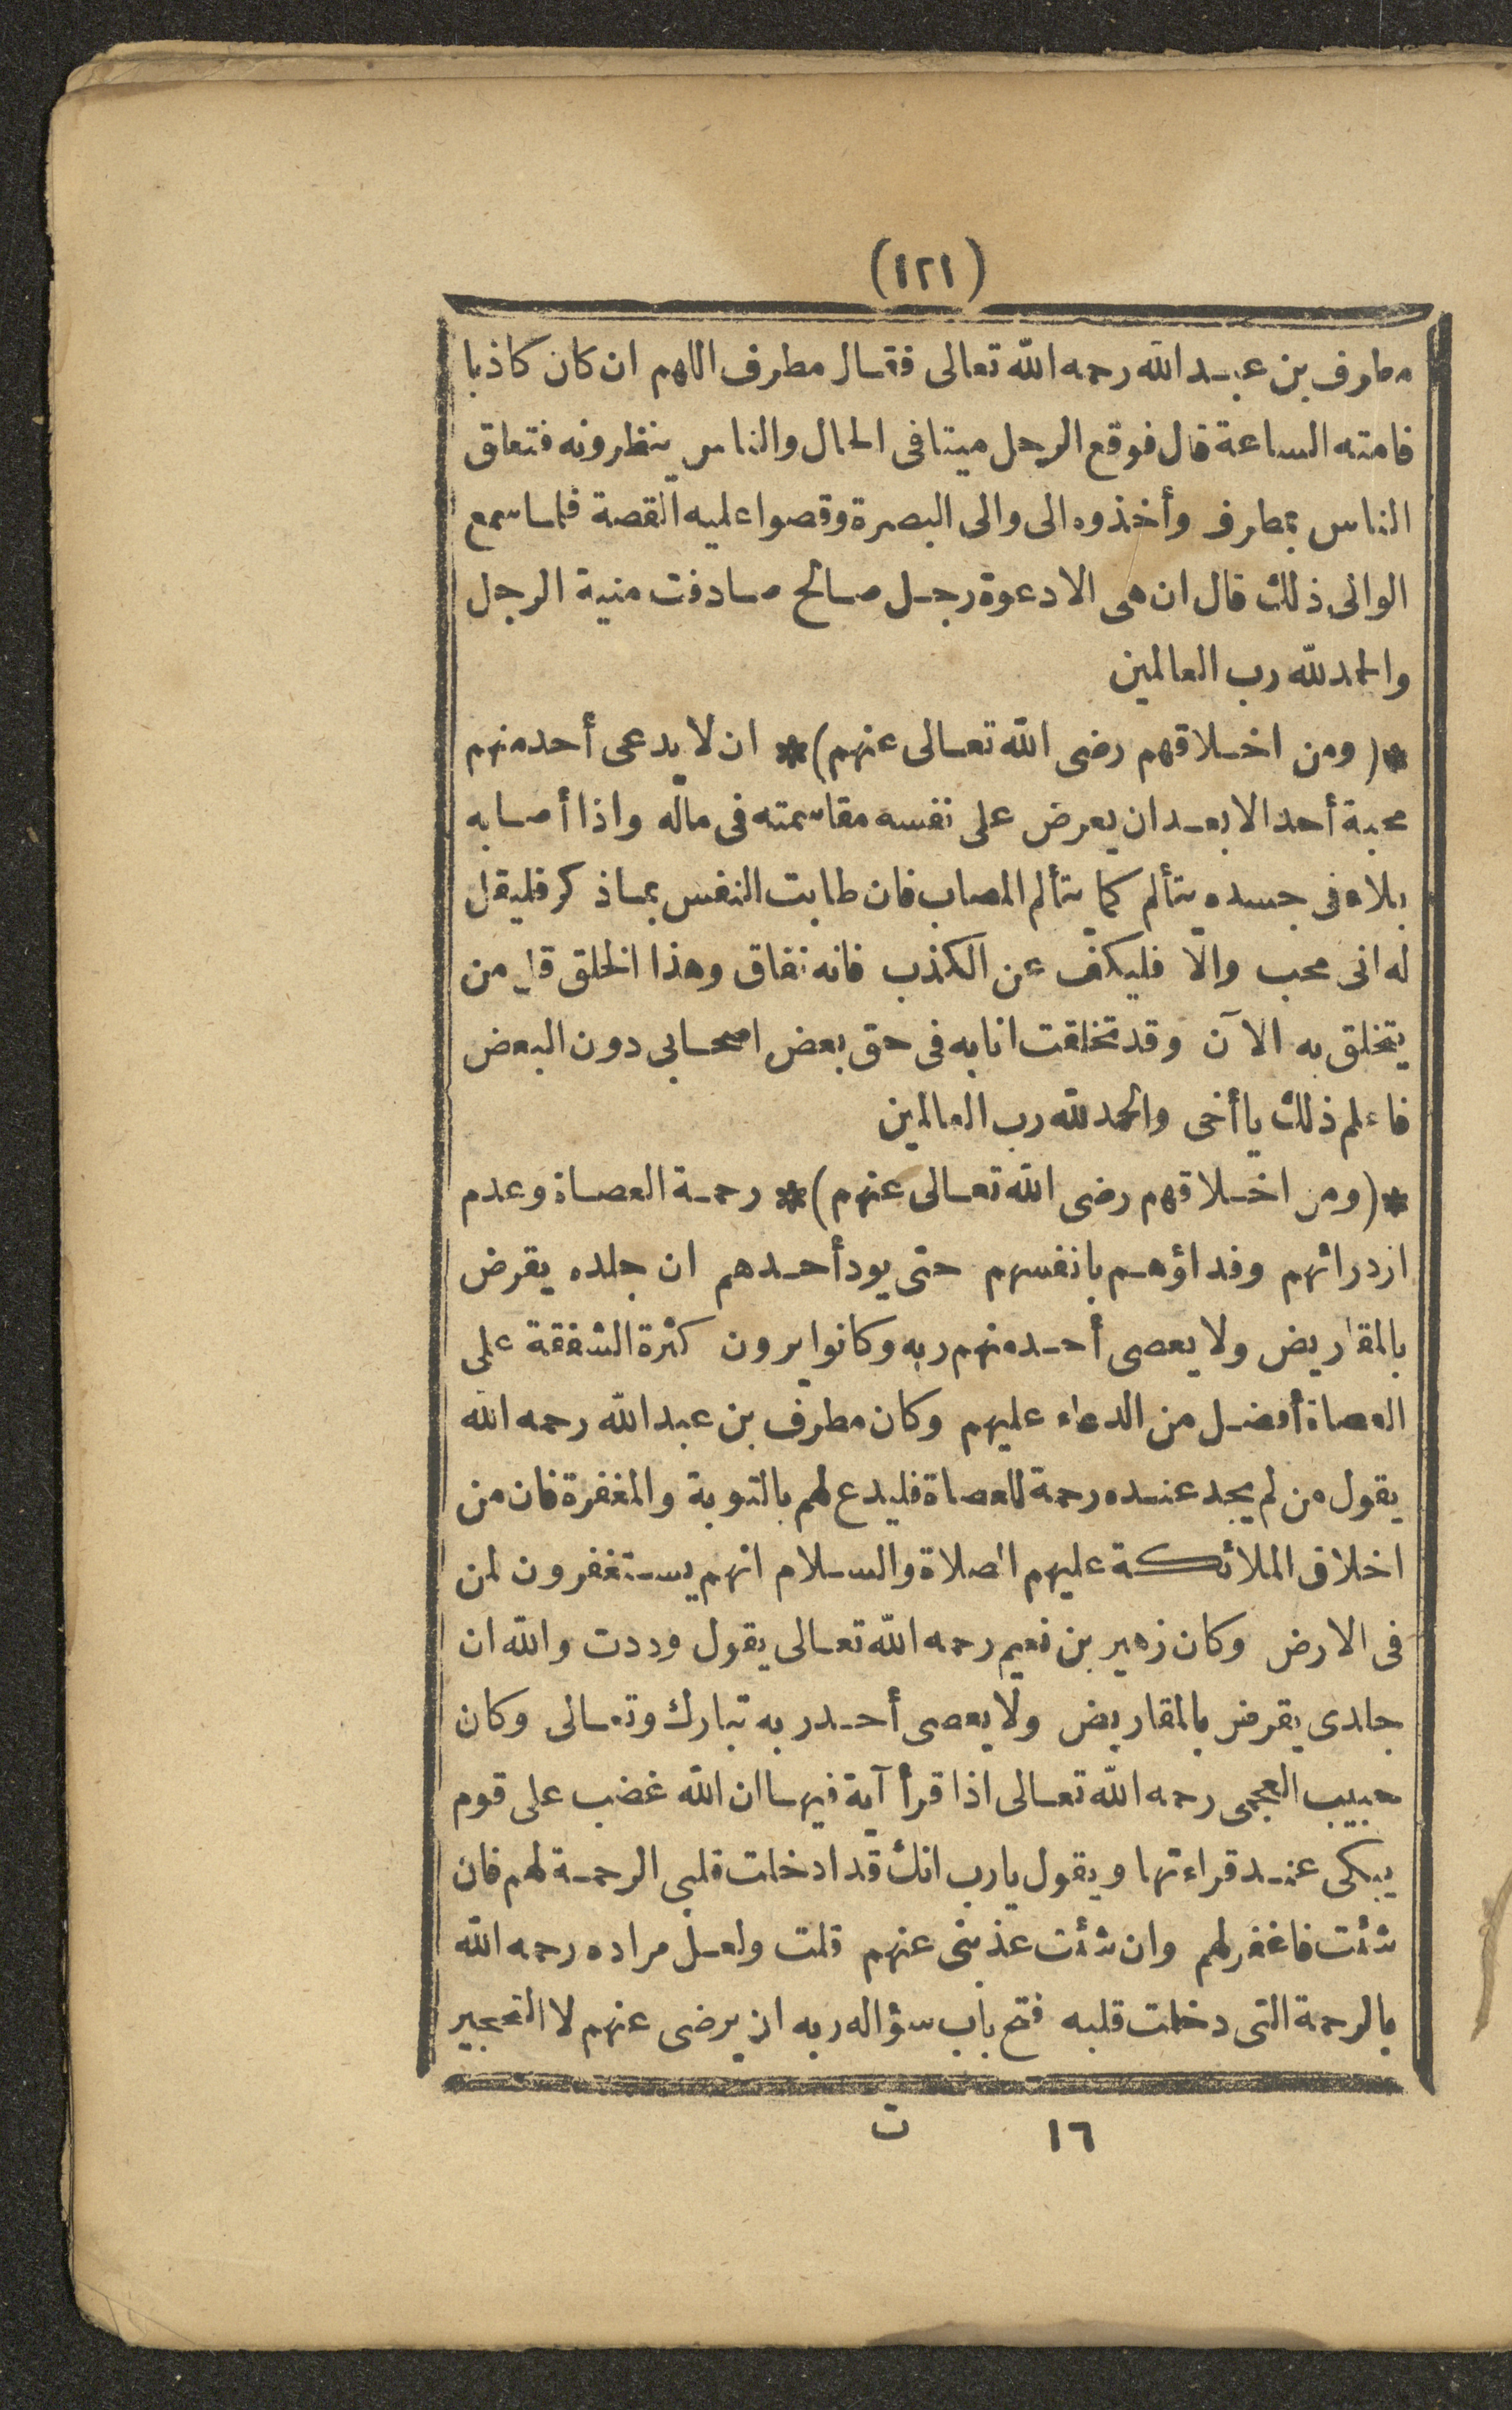 (١٢١)
مطرف بن عبد الله رحمه الله تعالى فقال مطرف اللهم ان كان كاذبا
فامته الساعة قال فوقع الرجل ميتا فى الحال والناس ينظرونه فتعلق
الناس بمطرف وأخذوه الى والى البصرة وقصوا عليه القصة فلما سمع
الوالى ذلك قال ان هى الا دعوة رجل صالح صادفت منية الرجل
والحمد لله رب العالمين
*(ومن اخلاقهم رضى الله تعالى عنهم)* ان لا يدعى أحد منهم
محبة أحد الا بعد ان يعرض على نفسه مقاسمته فى ماله واذا أصابه
بلاء فى جسده يتألم كما يتألم المصاب فان طابت النفس بما ذكر فليقل
له انى محب والا فليكف عن الكذب فانه نفاق وهذا الخلق قل من
يتخلق به الآن وقد تخلقت انا به فى حق بعض اصحابى دون البعض
فاعلم ذلك يا أخى والحمد لله رب العالمين
*(ومن اخلاقهم رضى الله تعالى عنهم)* رحمة العصاة وعدم
ازدرائهم وفداؤهم بانفسهم حتى يود أحدهم ان جلده يقرض
بالمقاريض ولا يعصى أحد منهم ربه وكانوا يرون كثرة الشفقة على
العصاة أفضل من الدعاء عليهم وكان مطرف بن عبد الله رحمه الله
يقول من لم يجد عنده رحمة للعصاة فليدع لهم بالتوبة والمغفرة فان من
اخلاق الملائكة عليهم الصلاة والسلام انهم يستغفرون لمن
فى الارض وكان زهير بن نعيم رحمه الله تعالى يقول وددت والله ان
جلدى يقرض بالمقاريض ولا يعصى أحد ربه تبارك وتعالى وكان
حبيب العجمى رحمه الله تعالى اذا قرأ آية فيها ان الله غضب على قوم
يبكى عند قراءتها ويقول يا رب انك قد ادخلت قلبى الرحمة لهم فان
شئت فاغفر لهم وان شئت عذبنى عنهم قلت ولعل مراده رحمه الله
بالرحمة التى دخلت قلبه فتح باب سؤاله ربه ان يرضى عنهم لا التحجير
١٦ ت